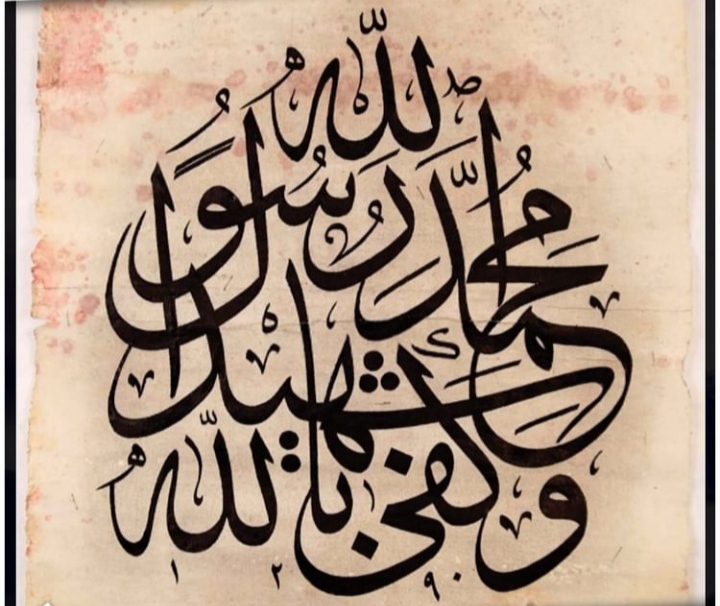 وَكَفَىٰ بِاللّٰهِ شَهِيدًا
مُحَمَّدٌ رَسُولُ اللّٰهِ
١٢٩٠